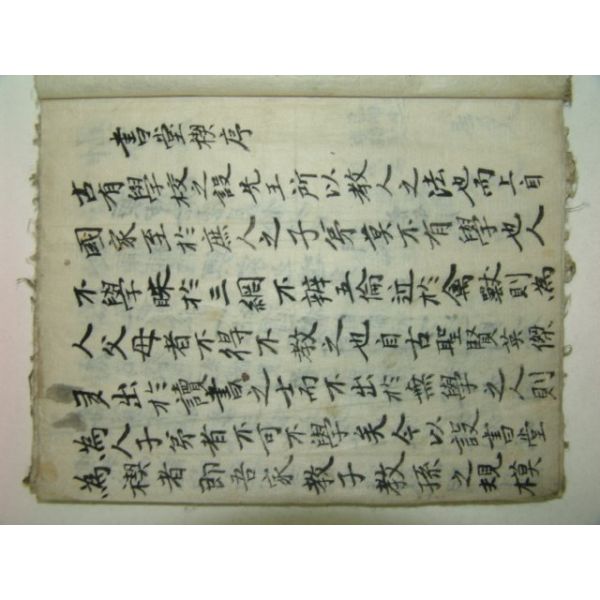 書堂稧序
古有學校之設先王所以教人之法也而上自
國家至於庶人之子弟莫不有學也人
不學昧於三綱不辨五倫近於禽獸則為
人父母者不得不教之也自古聖賢英傑
多出於讀書之士而不出於無學之人則
為人子弟者不可不學矣今以設書堂
為稧者即吾家教子教孫之規模